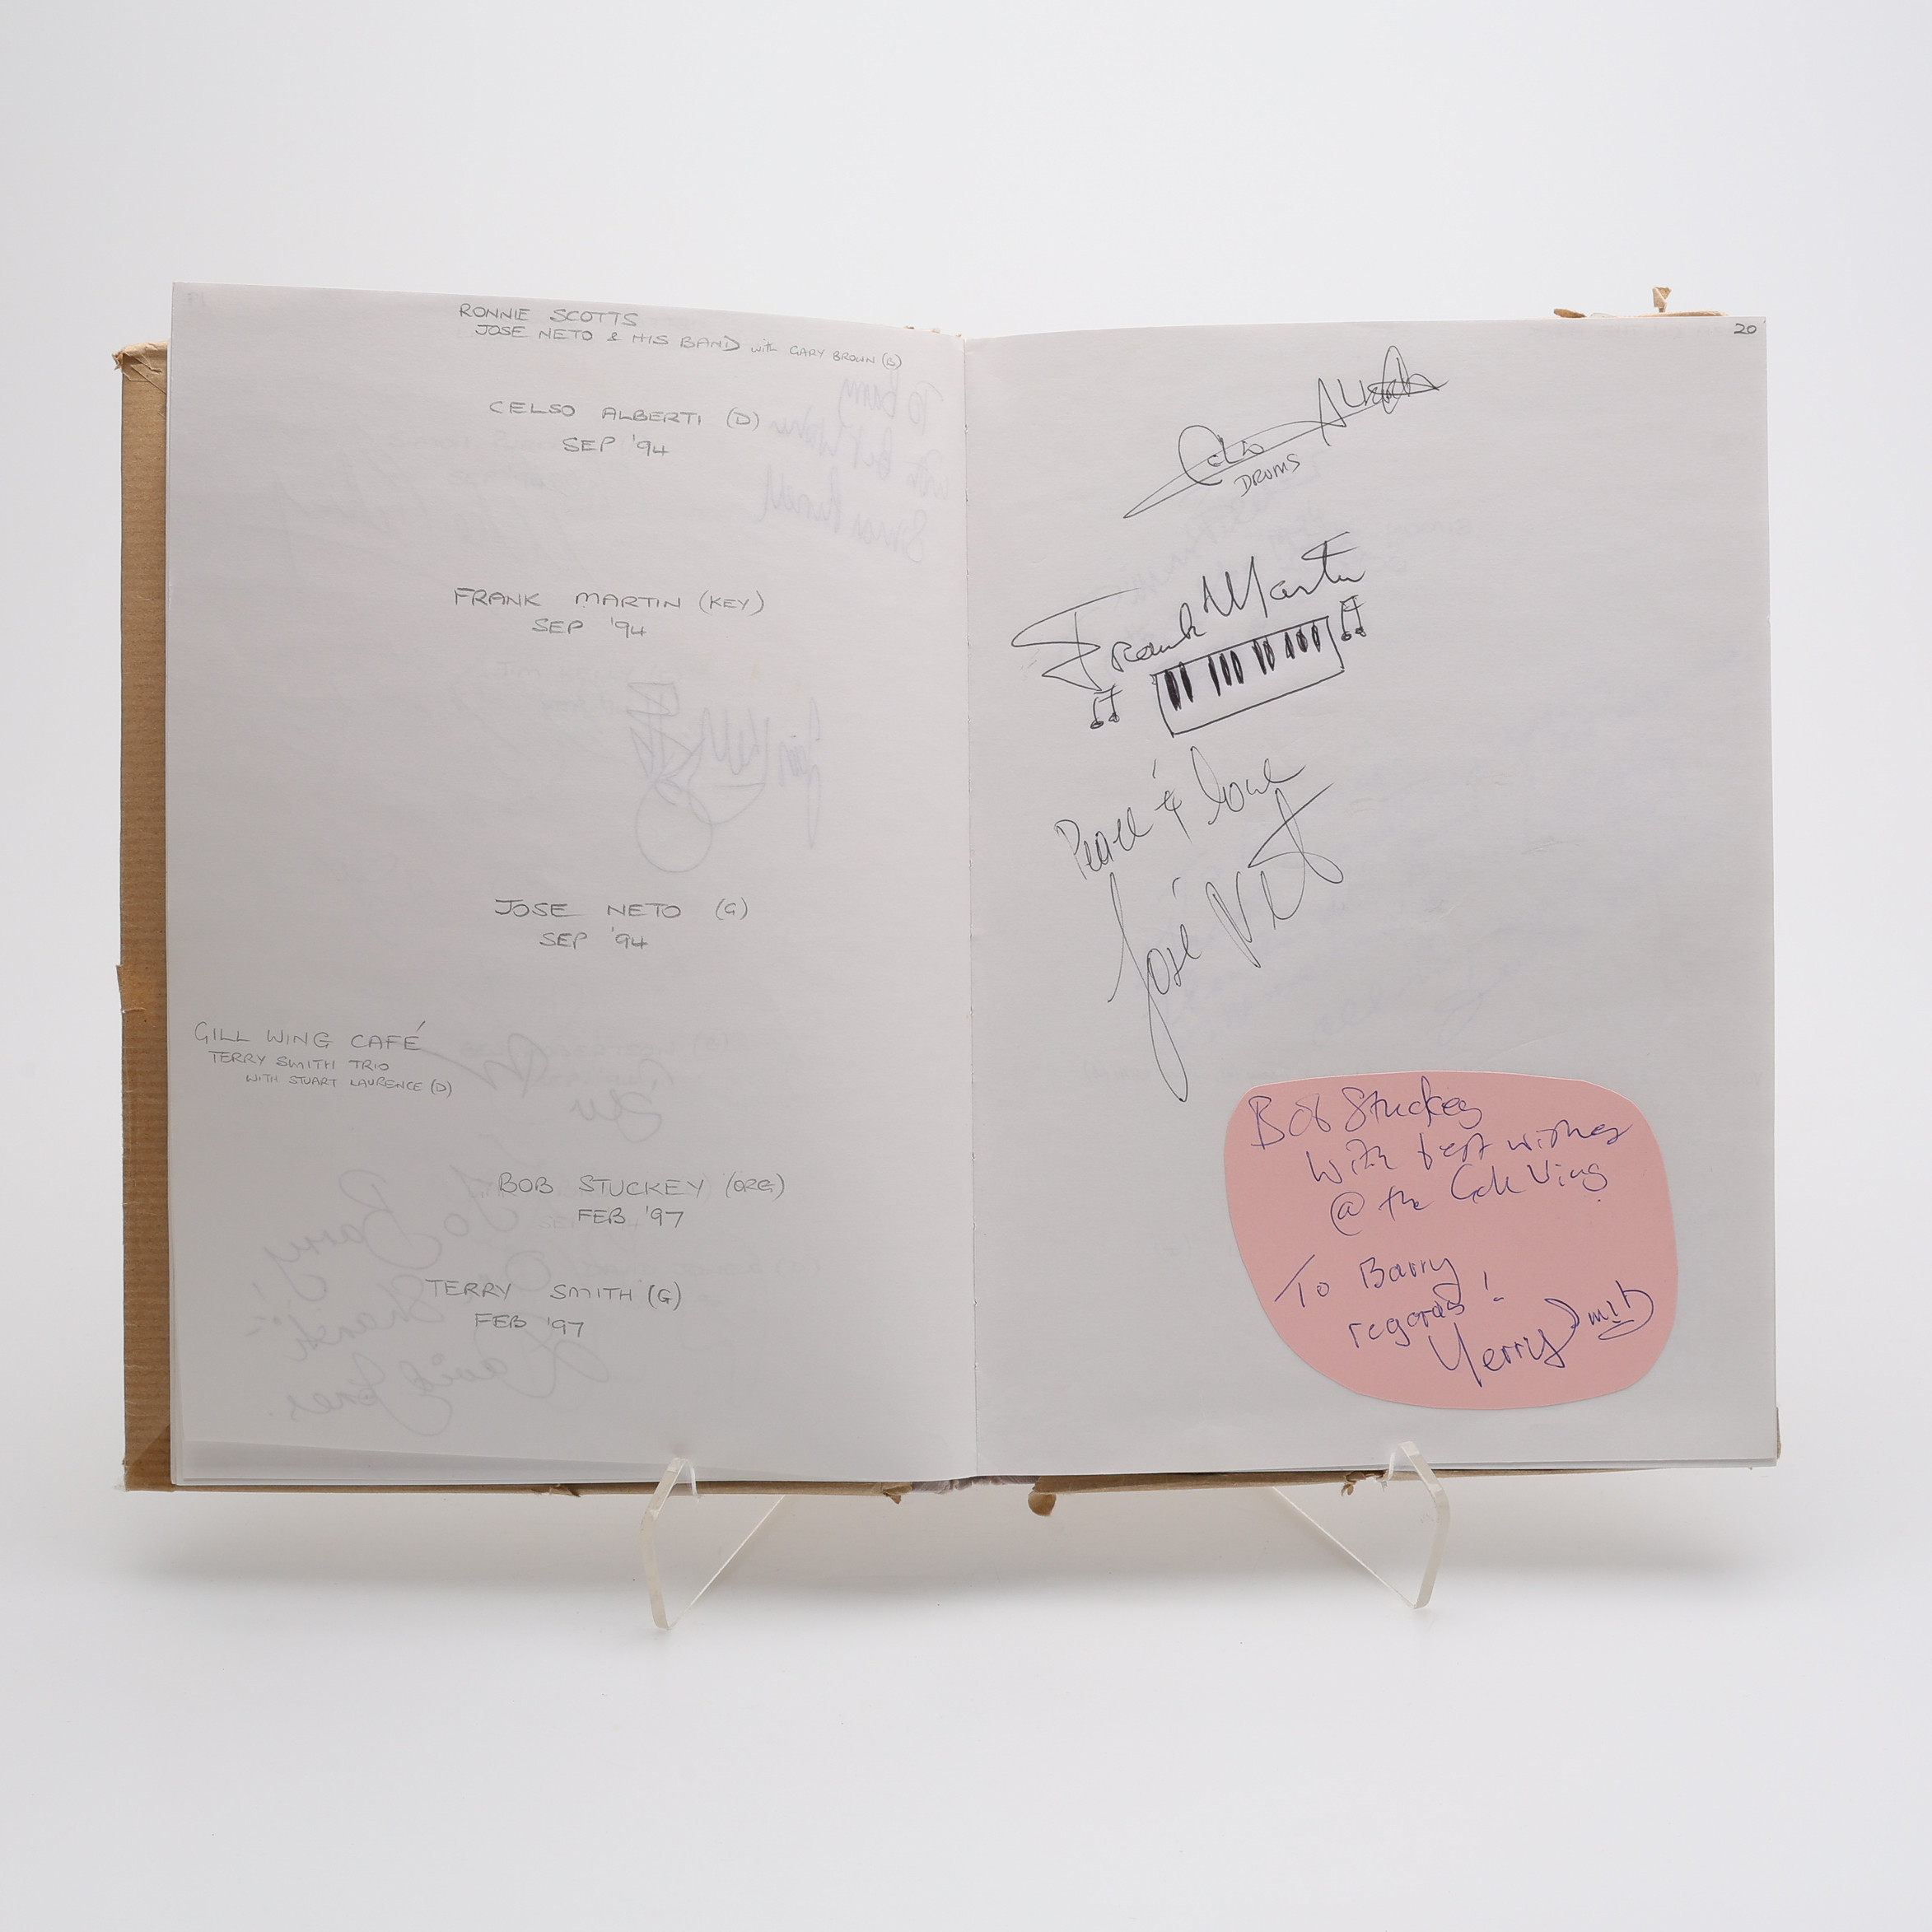 RONNIE SCOTTS
JOSE NETO & HIS BAND with GARY BROWN (B)
CELSO ALBERTI (D)
SEP '94
FRANK MARTIN (KEY)
SEP '94
JOSE NETO (G)
SEP '94
GILL WING CAFÉ
TERRY SMITH TRIO
WITH STUART LAURENCE (D)
BOB STUCKEY (ORG)
FEB '97
TERRY SMITH (G)
FEB '97
20
Celso Alberti
DRUMS
Frank Martin
Peace & love
José Neto
Bob Stuckey
with best wishes
@ the
To Barry
regards!
Terry Smith